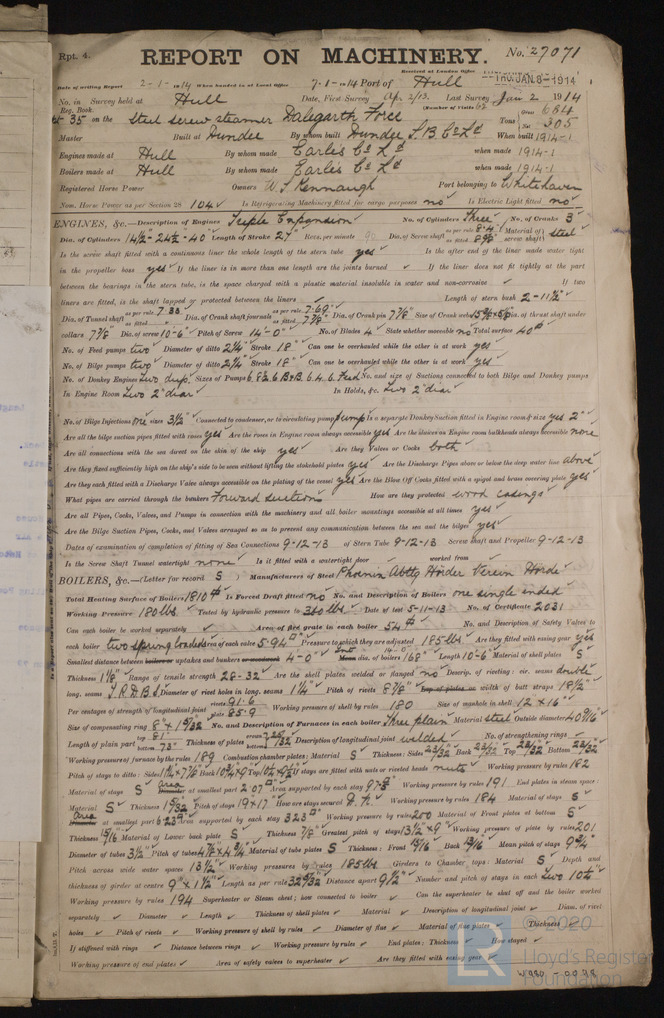 Rpt. 4.
REPORT ON MACHINERY. No. 27071
Received at London Office THU. JAN 8 - 1914
Date of writing Report 2-1-1914 When handed in at Local Office 7-1-1914 Port of Hull
No. in Survey held at Hull Date, First Survey Ap 2/13. Last Survey Jan 2 1914
Reg. Book. (Number of Visits
35 on the steel screw steamer Dalegarth Force Tons Gross 684 Net 305
Master Built at Dundee By whom built Dundee S.B. Co Ld When built 1914-1
Engines made at Hull By whom made Earle's Co Ld when made 1914-1
Boilers made at Hull By whom made Earle's Co Ld when made 1914-1
Registered Horse Power Owners W. S. Kennaugh Port belonging to Whitehaven
Nom. Horse Power as per Section 28 104 Is Refrigerating Machinery fitted for cargo purposes no Is Electric Light fitted no
ENGINES, &c.—Description of Engines Triple Expansion No. of Cylinders Three No. of Cranks 3
Dia. of Cylinders 14½"-24½-40" Length of Stroke 27" Revs. per minute 90 Dia. of Screw shaft as per rule 8.4 as fitted Material of screw shaft steel
Is the screw shaft fitted with a continuous liner the whole length of the stern tube yes Is the after end of the liner made water tight
in the propeller boss yes If the liner is in more than one length are the joints burned If the liner does not fit tightly at the part
between the bearings in the stern tube, is the space charged with a plastic material insoluble in water and non-corrosive If two
liners are fitted, is the shaft lapped or protected between the liners Length of stern bush 2-11½"
Dia. of Tunnel shaft as per rule 7.33 as fitted Dia. of Crank shaft journals as per rule 7.69 as fitted 7⅞" Dia. of Crank pin 7⅞" Size of Crank webs Dia. of thrust shaft under
collars 7⅞" Dia. of screw 10-6" Pitch of Screw 14-0" No. of Blades 4 State whether moveable no Total surface 40
No. of Feed pumps two Diameter of ditto 2¼" Stroke 18" Can one be overhauled while the other is at work yes
No. of Bilge pumps two Diameter of ditto 2¾" Stroke 18" Can one be overhauled while the other is at work yes
No. of Donkey Engines two dup. Sizes of Pumps No. and size of Suctions connected to both Bilge and Donkey pumps
In Engine Room Two 2" diar In Holds, &c. Two 2" diar
No. of Bilge Injections one sizes 3½" Connected to condenser, or to circulating pump pump Is a separate Donkey Suction fitted in Engine room & size yes 2"
Are all the bilge suction pipes fitted with roses yes Are the roses in Engine room always accessible yes Are the sluices on Engine room bulkheads always accessible none
Are all connections with the sea direct on the skin of the ship yes Are they Valves or Cocks both
Are they fixed sufficiently high on the ship's side to be seen without lifting the stokehold plates yes Are the Discharge Pipes above or below the deep water line above
Are they each fitted with a Discharge Valve always accessible on the plating of the vessel yes Are the Blow Off Cocks fitted with a spigot and brass covering plate yes
What pipes are carried through the bunkers Forward suctions How are they protected wood casings
Are all Pipes, Cocks, Valves, and Pumps in connection with the machinery and all boiler mountings accessible at all times yes
Are the Bilge Suction Pipes, Cocks, and Valves arranged so as to prevent any communication between the sea and the bilges yes
Dates of examination of completion of fitting of Sea Connections 9-12-13 of Stern Tube 9-12-13 Screw shaft and Propeller 9-12-13
Is the Screw Shaft Tunnel watertight none Is it fitted with a watertight door worked from
BOILERS, &c.—(Letter for record S) Manufacturers of Steel Phoenix Abtlg Hörder Verein Hörde
Total Heating Surface of Boilers 1810 Is Forced Draft fitted no No. and Description of Boilers one single ended
Working Pressure 180 lbs Tested by hydraulic pressure to 360 lbs Date of test 5-11-13 No. of Certificate 2031
Can each boiler be worked separately Area of fire grate in each boiler 54 No. and Description of Safety Valves to
each boiler two spring loaded Area of each valve 5.94 Pressure to which they are adjusted 185 lbs Are they fitted with easing gear yes
Smallest distance between boilers or uptakes and bunkers or woodwork 4-0" Mean dia. of boilers 168" Length 10-6" Material of shell plates S
Thickness 1⅛" Range of tensile strength 28-32 Are the shell plates welded or flanged no Descrip. of riveting: cir. seams double
long. seams T.R.D.B.S. Diameter of rivet holes in long. seams 1¼" Pitch of rivets 8⅞" Lap of plates or width of butt straps 18½"
Per centages of strength of longitudinal joint rivets 91.6 plate 85.9 Working pressure of shell by rules 180 Size of manhole in shell 12 x 16"
Size of compensating ring 8" x 1 5/32" No. and Description of Furnaces in each boiler Three plain Material steel Outside diameter 40 9/16"
Length of plain part top 81" bottom 73" Thickness of plates crown bottom 25/32 Description of longitudinal joint welded No. of strengthening rings
Working pressure of furnace by the rules 189 Combustion chamber plates: Material S Thickness: Sides 23/32 Back 23/32 Top 23/32 Bottom 23/32
Pitch of stays to ditto: Sides Back Top If stays are fitted with nuts or riveted heads nuts Working pressure by rules 182
Material of stays S Area at smallest part 2.07 Area supported by each stay Working pressure by rules 191 End plates in steam space:
Material S Thickness 1 5/32 Pitch of stays 19 x 17" How are stays secured Working pressure by rules 184 Material of stays S
Area at smallest part 6.23 Area supported by each stay 323 Working pressure by rules 200 Material of Front plates at bottom S
Thickness 15/16 Material of Lower back plate S Thickness 7/8 Greatest pitch of stays 13½ x 9" Working pressure of plate by rules 201
Diameter of tubes 3½" Pitch of tubes 4⅞ x 4¾" Material of tube plates S Thickness: Front 15/16 Back 13/16 Mean pitch of stays 9¾"
Pitch across wide water spaces 13½" Working pressures by rules 185 lbs Girders to Chamber tops: Material S Depth and
thickness of girder at centre 9" x 1½" Length as per rule 32 Distance apart 9½" Number and pitch of stays in each two 10½
Working pressure by rules 194 Superheater or Steam chest; how connected to boiler Can the superheater be shut off and the boiler worked
separately Diameter Length Thickness of shell plates Material Description of longitudinal joint Diam. of rivet
holes Pitch of rivets Working pressure of shell by rules Diameter of flue Material of flue plates Thickness
If stiffened with rings Distance between rings Working pressure by rules End plates: Thickness How stayed
Working pressure of end plates Area of safety valves to superheater Are they fitted with easing gear
© 2020
Lloyd's Register
Foundation